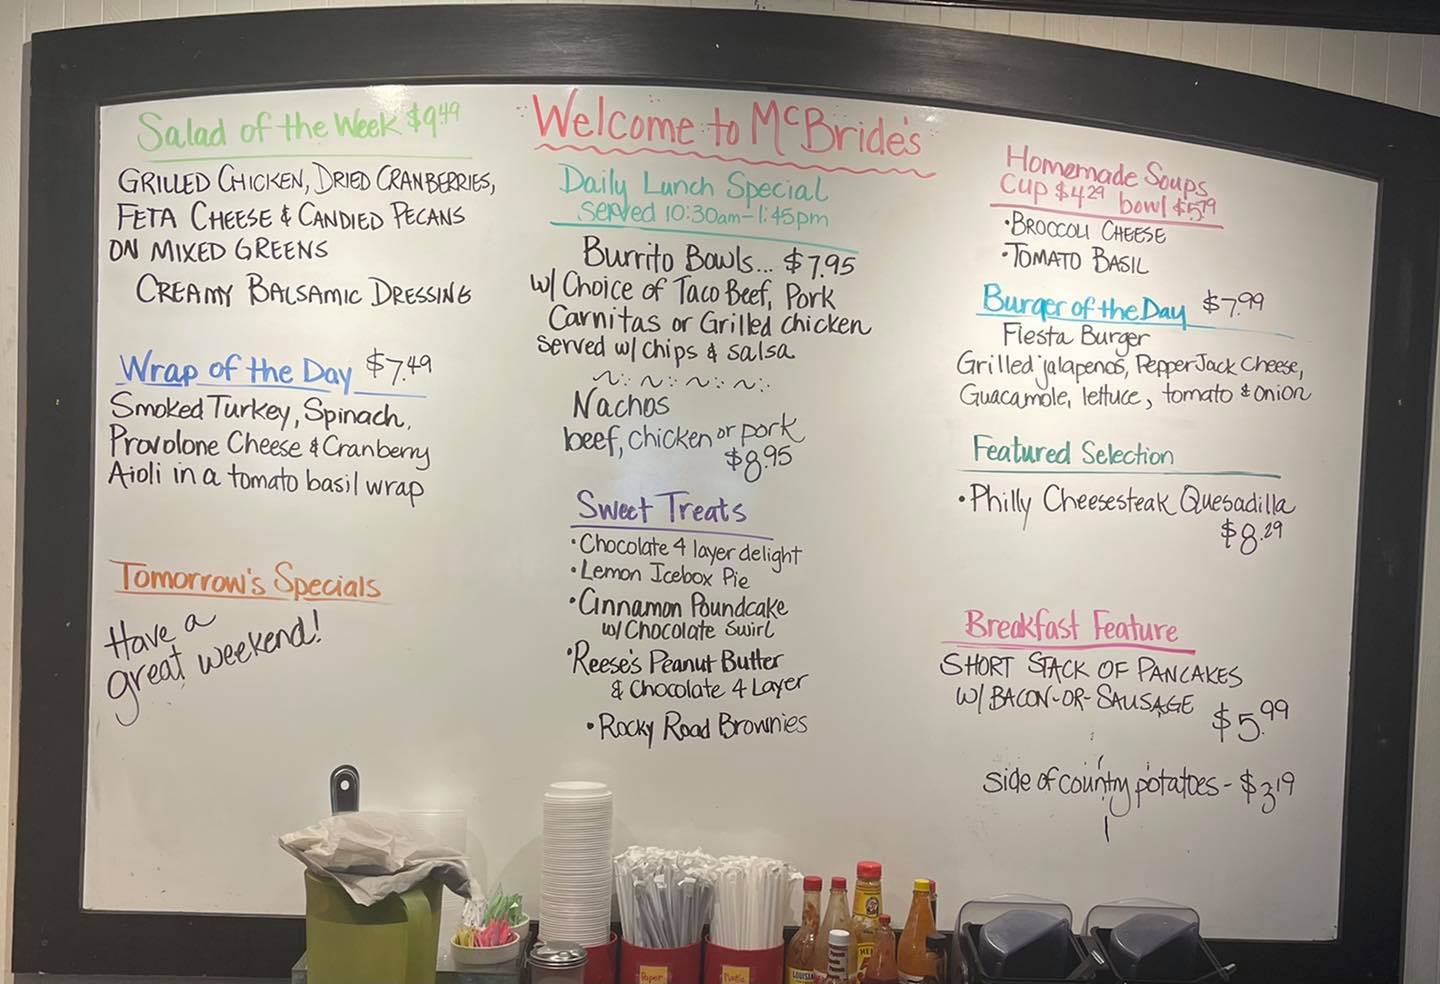 Salad of the Week $9.49
GRILLED CHICKEN, DRIED CRANBERRIES,
FETA CHEESE & CANDIED PECANS
ON MIXED GREENS
CREAMY BALSAMIC DRESSING
Wrap of the Day $7.49
Smoked Turkey, Spinach,
Provolone Cheese & Cranberry
Aioli in a tomato basil wrap
Tomorrow's Specials
Have a
great weekend!
Welcome to McBride's
Daily Lunch Special
Served 10:30am-1:45pm
Burrito Bowls... $7.95
w/ Choice of Taco Beef, Pork
Carnitas or Grilled chicken
served w/ chips & salsa
Nachos
beef, chicken or pork
$8.95
Sweet Treats
• Chocolate 4 layer delight
• Lemon Icebox Pie
• Cinnamon Poundcake
w/ Chocolate Swirl
• Reese's Peanut Butter
& Chocolate 4 Layer
• Rocky Road Brownies
Homemade Soups
Cup $4.29 bowl $5.79
• BROCCOLI CHEESE
• TOMATO BASIL
Burger of the Day $7.99
Fiesta Burger
Grilled jalapenos, Pepper Jack Cheese,
Guacamole, lettuce, tomato & onion
Featured Selection
• Philly Cheesesteak Quesadilla
$8.29
Breakfast Feature
SHORT STACK OF PANCAKES
W/ BACON-OR-SAUSAGE $5.99
side of country potatoes - $3.19
Paper
Plastic